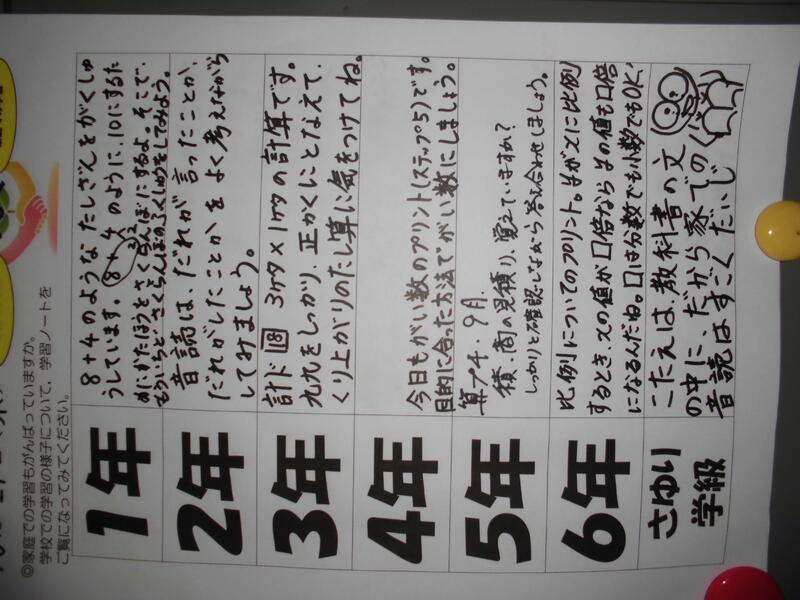 ◎家庭での学習もがんばっていますか。
学校での学習の様子について、学習ノートを
ご覧になってみてください。
1年
8+4のような たしざんをがくしゅ
うしています。8+4 のように、10にするた
めにかたほうをさくらんぼにするよ。そこで、
もういちど さくらんぼのふくしゅうをしてみよう。
2年
音読は、だれが 言ったことか、
だれがしたことかを よく考えながら
してみましょう。
3年
計ド18 3ケタ×1ケタの計算です。
九九をしっかり、正かくにとなえて、
くり上がりのたし算に気をつけてね。
4年
今日もがい数のプリント(ステップ5)です。
目的に合った方法でがい数にしましょう。
5年
算プ4.9月
積、商の見積り、覚えていますか?
しっかりと確認しながら答え合わせしましょう。
6年
比例についてのプリント。yがxに比例
するとき、xの値が□倍ならyの値も□倍
になるんだね。□は分数でも小数でもOK!
さゆり
学級
こたえは、教科書の文
の中に、だから家での
音読はすごくだいじ